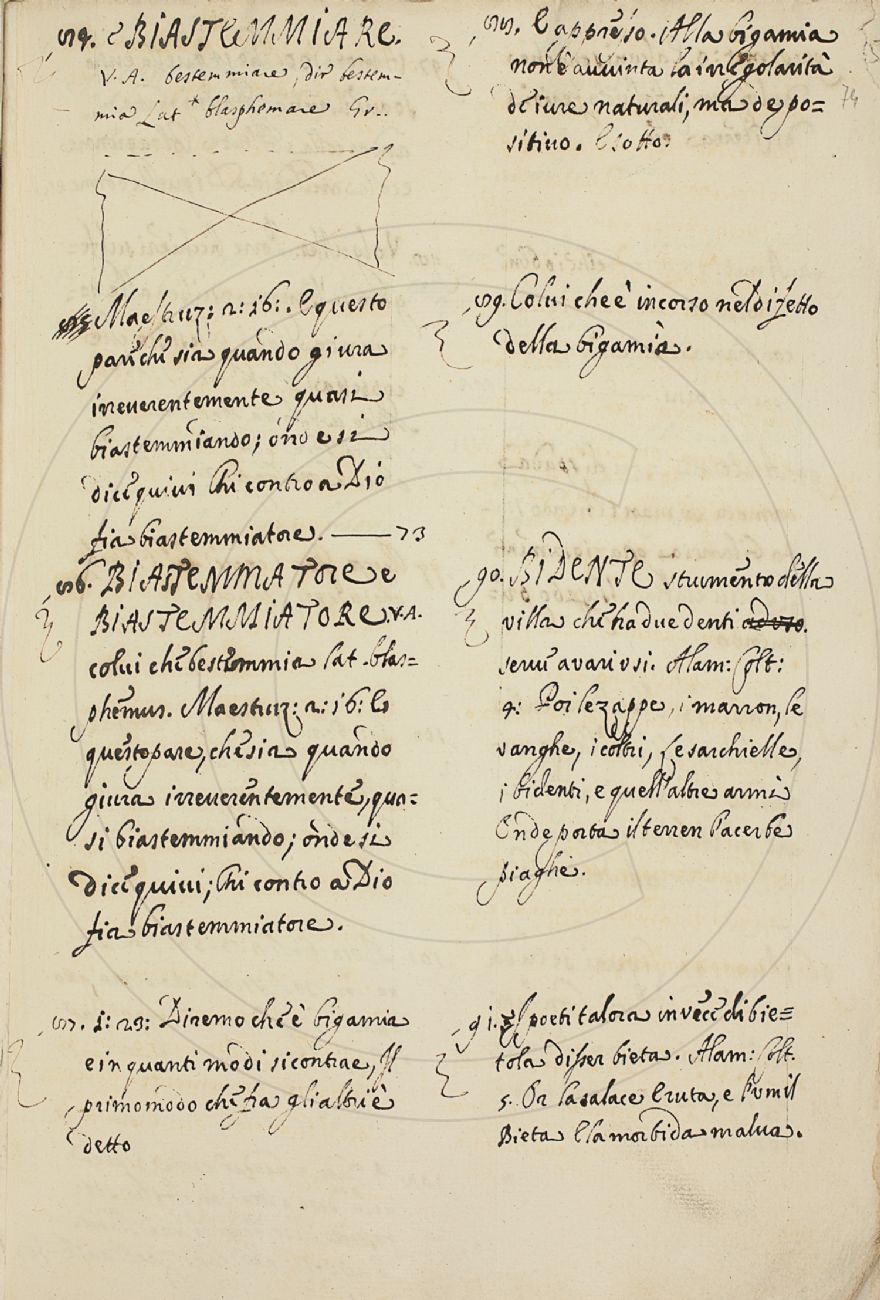 84. e BIASTEMMIARE.
V.A. bestemmiare, dir bestem-
mia Lat blasphemare Gr..
Maestruz: 2: 16: E questo
pare, che sia quando giura
irreverentemente quasi
biastemmiando; onde si
dice quivi Chi contro a Dio
fia biastemmiatore. —— 73
86. BIASTEMMATORE e
BIASTEMMIATORE. V.A.
colui che bestemmia lat. blas=
phemus. Maestruz: 2: 16: E
questo pare, che sia quando
giura irreverentemente, qua=
si biastemmiando; onde si
dice quivi; Chi contro a Dio
fia biastemmiatore.
87. 1: 23: Diremo che è bigamia
e in quanti modi si contrae, Il
primo modo che fia gli altri è
detto
E appresso. Alla bigamia
non è avvinta la irregolarità
de iure naturali, ma de po=
sitivo. E sotto:
89. Colui che è incorso nel difetto
della bigamia.
90. BIDENTE strumento della
villa che ha due denti ad uso.
serve a vari usi. Alam: Colt:
4: Poi le zappe, i marron, le
vanghe, i coltri, Le sarchielle,
i bidenti, e quell'altre armi
Onde porta il terren l'acerbe
piaghe.
91. I poeti talora in vece di bie=
tola disser bieta. Alam: Colt.
5. Or la salace Eruta, e l'umil
Bieta E la morbida malva.
74